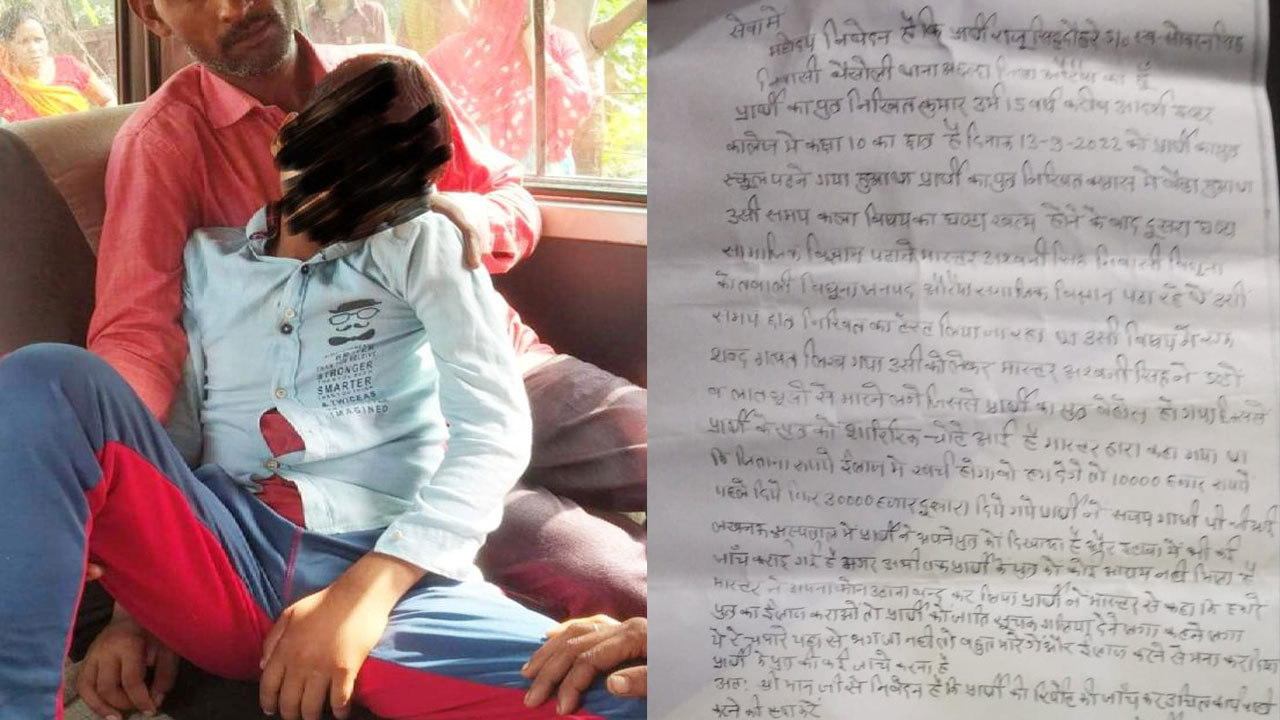 STRONGER
SMARTER
IMAGINED
सेवा मे
महोदय निवेदन है कि प्रार्थी राजू सिंह दोहरे S/o स्व
निवासी वैसोली थाना अछल्दा जिला औरैया का हूँ
प्रार्थी का पुत्र निखित कुमार उम्र 15 वर्ष करीब आदर्श इण्टर
कालेज मे कक्षा 10 का छात्र है दिनांक 13-9-2022 को प्रार्थी का पुत्र
स्कूल पढने गया हुआ था प्रार्थी का पुत्र निखित क्लास मे बैठा हुआ था
उसी समय कला विषय का घण्टा खत्म होने के बाद दूसरा घण्टा
सामाजिक विज्ञान पढाने मास्टर अश्वनी सिंह निवासी विधूना
कोतवाली विधूना जनपद औरैया समाजिक विज्ञान पढा रहे थे उसी
समय छात्र निखित का टेस्ट लिया जा रहा था उसी विषय मे एक
शब्द गलत लिख गया उसी को लेकर मास्टर अश्वनी सिंह ने डण्डो
व लात घूसो से मारने लगे जिससे प्रार्थी का पुत्र बेहोश हो गया जिससे
प्रार्थी के पुत्र को शारिरिक चोटे आई है मास्टर द्वारा कहा गया था
कि जितना रुपया ईलाज मे खर्चा होगा वो हम देगे तो 10000 हजार रूपये
पहले दिये फिर 30000 हजार दुबारा दिये गये प्रार्थी ने सजय गाधी पी जी आई
लखनऊ अस्पताल मे प्रार्थी ने अपने पुत्र को दिखाया है और इटावा मे भी की
जाँच कराई गई है मगर अभी तक प्रार्थी के पुत्र को कोई आराम नही मिला है
मास्टर ने अपना फोन उठाना बन्द कर लिया प्रार्थी ने मास्टर से कहा कि हमारे
पुत्र का ईलाज कराओ तो प्रार्थी को जाति सूचक गालिया देने लगा कहने लगा
चमारे यहा से भाग जा नही तो बहुत मारेगे और ईलाज कराने से मना कर दिया
प्रार्थी के पुत्र की कई जाँचे करना है
अतः श्री मान जी से निवेदन है कि प्रार्थी की रिपोर्ट की जाँच कर उचित कार्यवाही
करने की कृपा करे